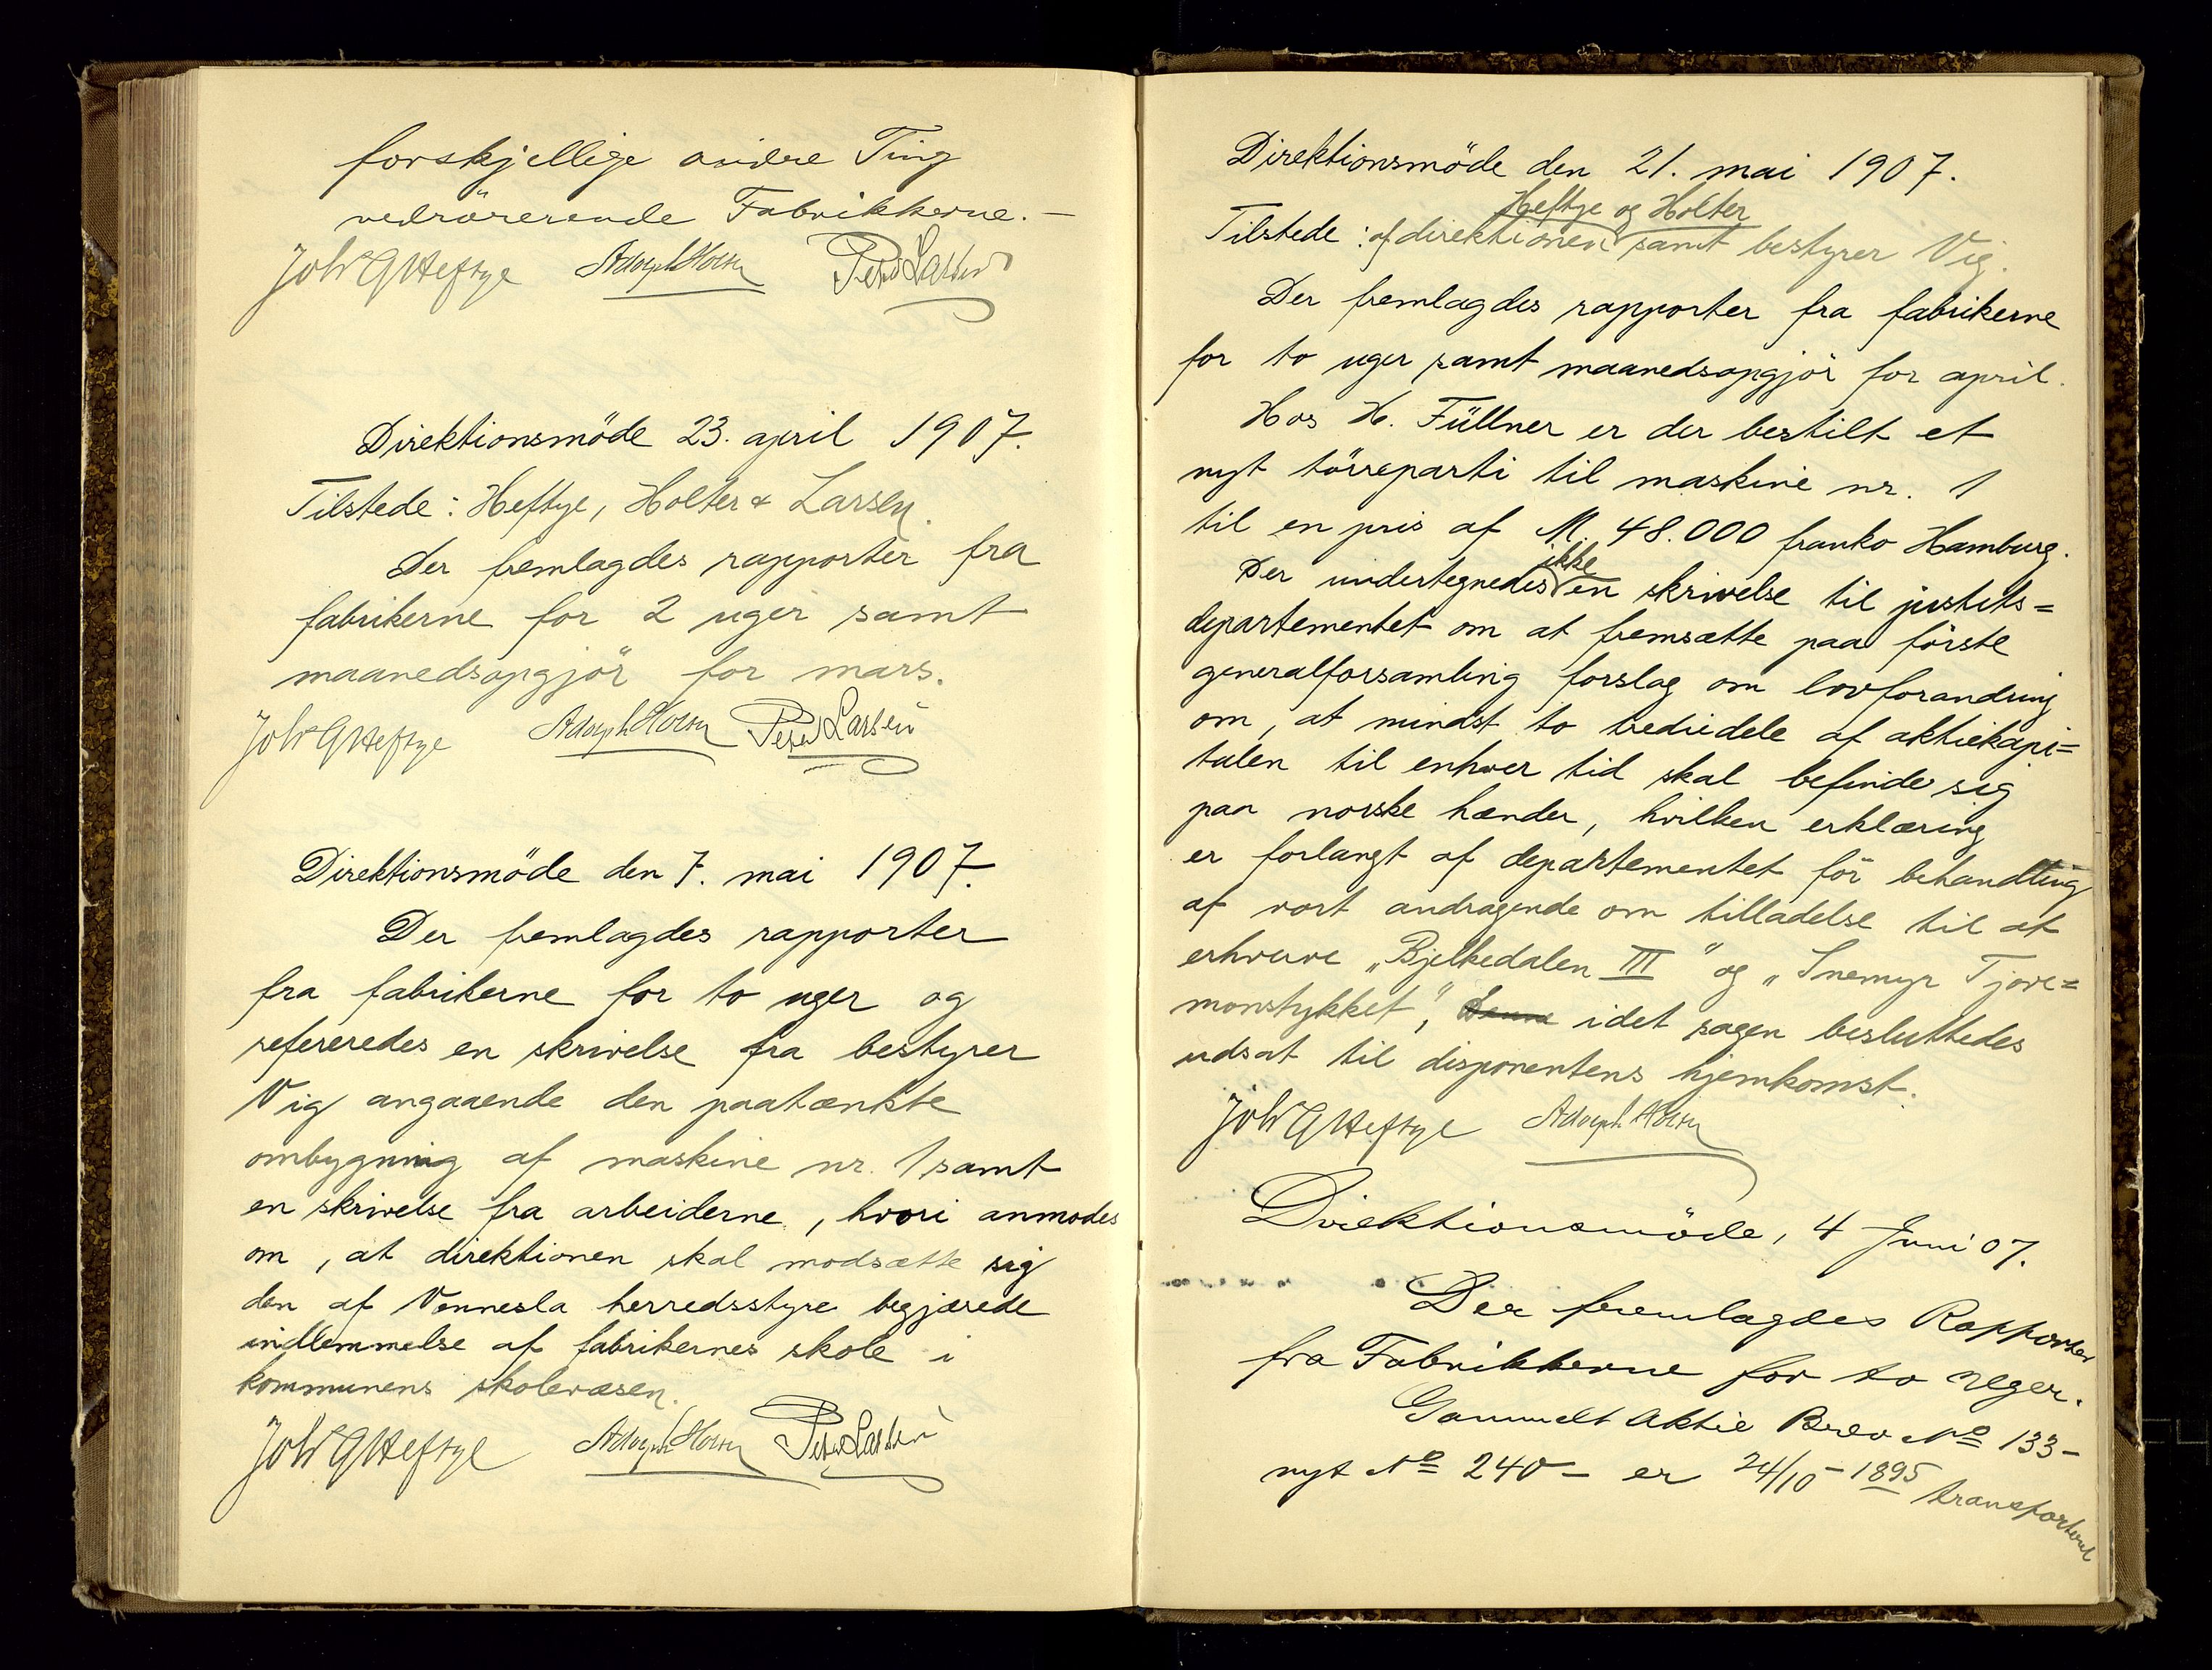 forskjellige andre Ting
vedrörerende Fabrikkerne.-
Joh G Heftye Adolph Holter Peter Larsen
Direktionsmöde 23. april 1907.
Tilstede: Heftye, Holter & Larsen.
Der fremlagdes rapporter fra
fabrikerne for 2 uger samt
maanedsopgjör for mars.
Joh G Heftye Adolph Holter Peter Larsen
Direktionsmöde den 7. mai 1907.
Der fremlagdes rapporter
fra fabrikerne for to uger og
refereredes en skrivelse fra bestyrer
Vig angaaende den paatænkte
ombygning af maskine nr. 1 samt
en skrivelse fra arbeiderne, hvori anmodes
om, at direktionen skal modsætte sig
den af Vennesla herredsstyre begjærede
indlemmelse af fabrikernes skole i
kommunens skolevæsen.
Joh G Heftye Adolph Holter Peter Larsen
Direktionsmöde den 21. mai 1907.
Heftye og Holter
Tilstede: af direktionen samt bestyrer Vig.
Der fremlagdes rapporter fra fabrikerne
for to uger samt maanedsopgjör for april.
Hos H. Füllner er der bestilt et
nyt törreparti til maskine nr. 1
til en pris af M. 48.000 franko Hamburg.
ikke
Der undertegnedes en skrivelse til justits=
departementet om at fremsætte paa förste
generalforsamling forslag om lovforandring
om, at mindst to trediedele af aktiekapi=
talen til enhver tid skal befinde sig
paa norske hænder, hvilken erklæring
er forlangt af departementet för behandling
af vort andragende om tilladelse til at
erhverve „Bjelkedalen III" og „Snemyr Tjore=
monstykket", Denne idet sagen besluttedes
udsat til disponentens hjemkomst.
Joh G Heftye Adolph Holter
Direktionsmöde, 4 Juni 07.
Der fremlagdes Rapporter
fra Fabrikkerne for to Uger.
Gammelt Aktie Brev No 133-
nyt No 240- er 24/10-1895 transporteret